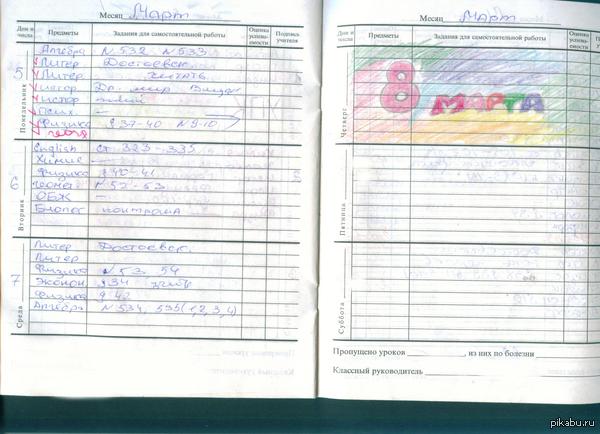 Месяц Март
Дни и числа Предметы Задания для самостоятельной работы Оценка успеваемости Подпись учителя
5 Понедельник
Алгебра N 532 N 533
Литер Достоевск.
Литер читать
истор Др. мир
истор
Псих. —
Физика § 37-40 N 9-10
6 Вторник
English ст 323-335
Химия —
Физика § 40-41
Геоме N 52-53
ОБЖ —
Биолог контрольн
7 Среда
Литер Достоевск.
Литер
Физика N 53 54
Эконом § 34
Физика § 42
Алгебра N 534, 535 (1,2,3,4)
Месяц Март
Дни и числа Предметы Задания для самостоятельной работы Оценка успеваемости Подпись учителя
Четверг
8 МАРТА
Пятница
Суббота
Пропущено уроков , из них по болезни
Классный руководитель
pikabu.ru